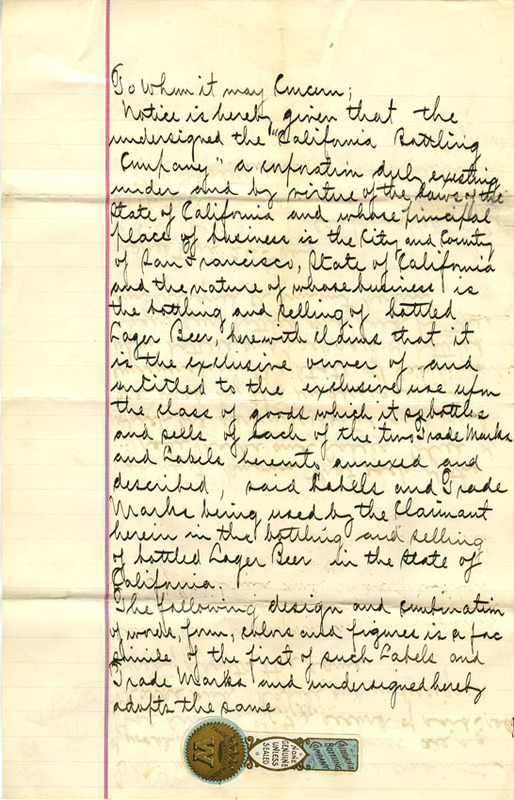 To whom it may Concern;
Notice is hereby given that the
undersigned the "California Bottling
Company" a corporation duly existing
under and by virtue of the Laws of the
State of California and whose principal
place of business is the City and County
of San Francisco, State of California
and the nature of whose business is
the bottling and selling of bottled
Lager Beer, herewith claims that it
is the exclusive owner of and
entitled to the exclusive use upon
the class of goods which it so bottles
and sells of each of the two Trade Marks
and Labels hereunto annexed and
described, said Labels and Trade
Marks being used by the Claimant
herein in the bottling and selling
of bottled Lager Beer in the State of
California.
The following design and combination
of words, form, colors and figures is a fac
simile of the first of such Labels and
Trade Marks and undersigned hereby
adopts the same
W
NONE
GENUINE
UNLESS
SEALED
CALIFORNIA
BOTTLING
COMPANY